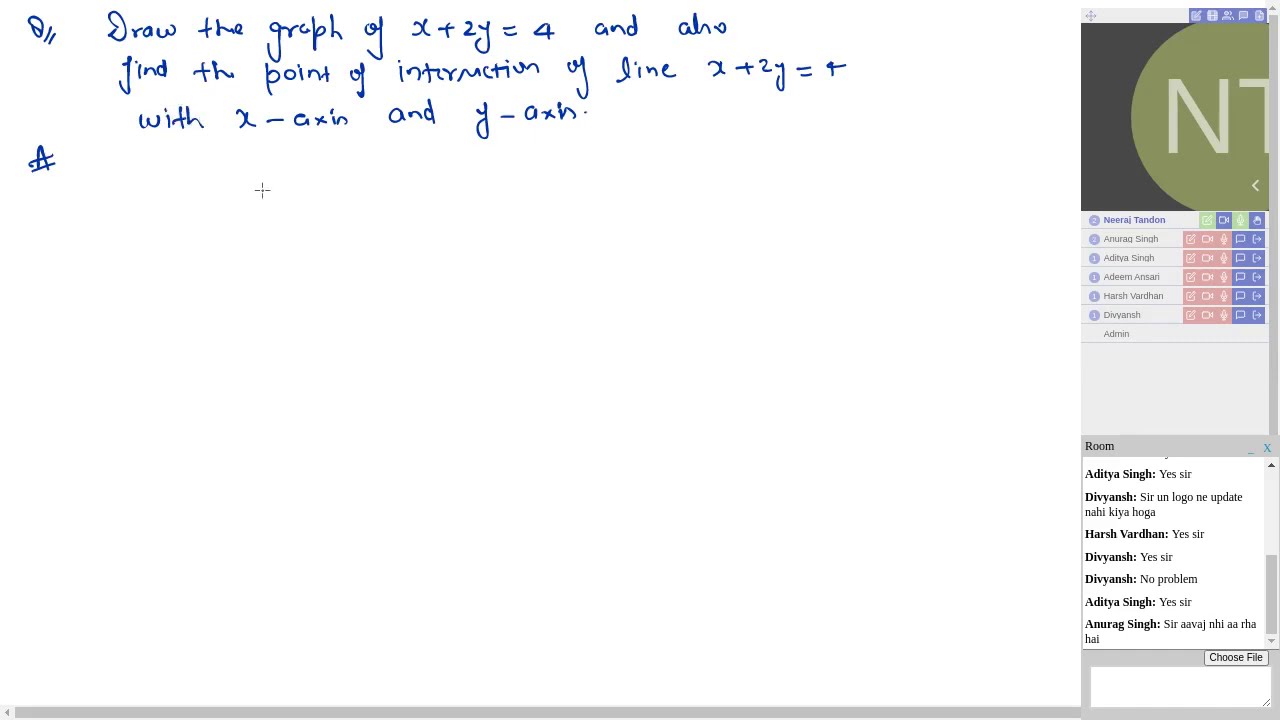 Q// Draw the graph of x + 2y = 4 and also
find the point of intersection of line x + 2y = 4
with x - axis and y - axis.
A
NT
Neeraj Tandon
Anurag Singh
Aditya Singh
Adeem Ansari
Harsh Vardhan
Divyansh
Admin
Room _ X
Aditya Singh: Yes sir
Divyansh: Sir un logo ne update
nahi kiya hoga
Harsh Vardhan: Yes sir
Divyansh: Yes sir
Divyansh: No problem
Aditya Singh: Yes sir
Anurag Singh: Sir aavaj nhi aa rha
hai
Choose File